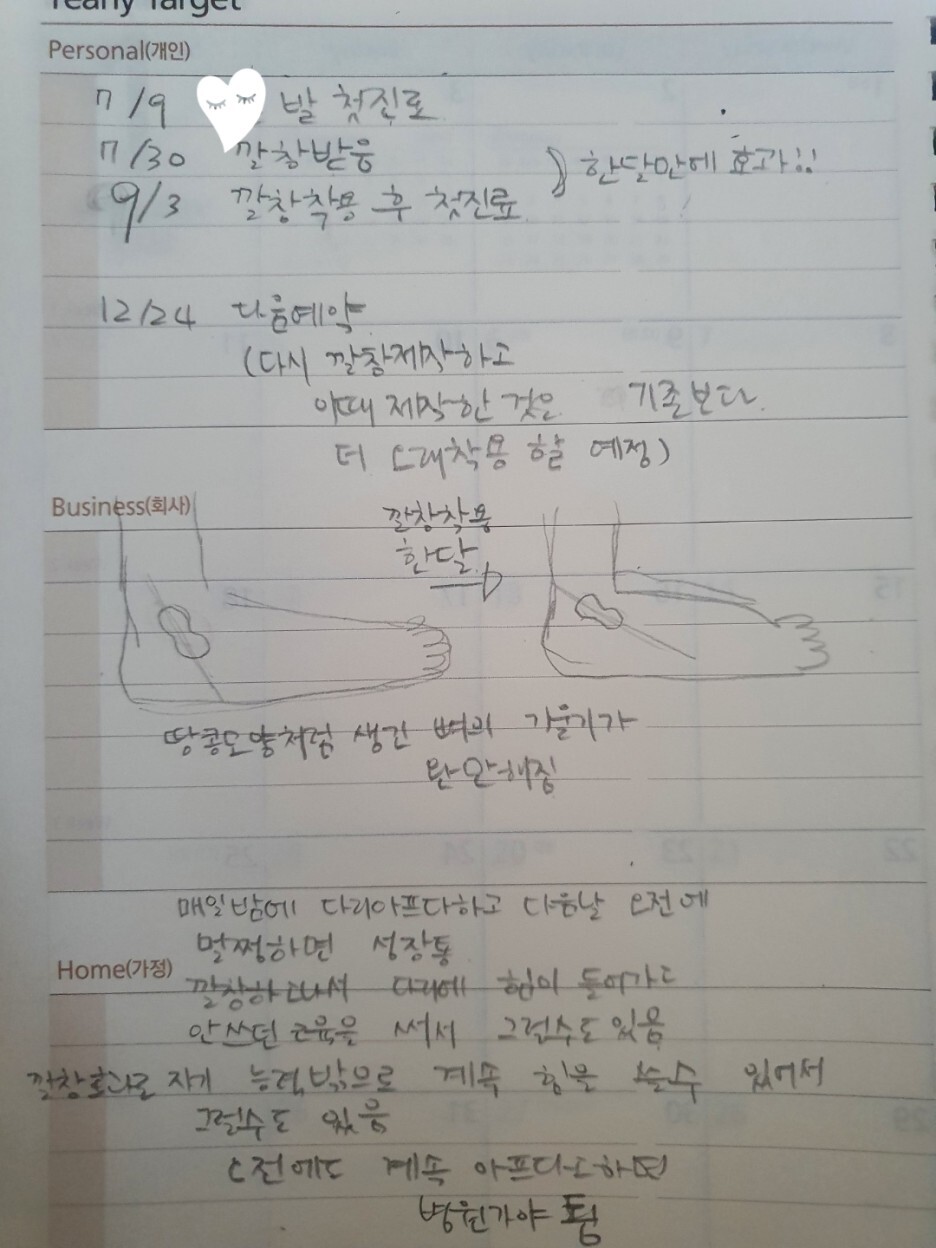 Yearly Target
Personal(개인)
7/9 발 첫진료
7/30 깔창받음
9/3 깔창착용 후 첫진료
한달만에 효과!!
12/24 다음예약
(다시 깔창제작하고
이때 제작한 것은 기존보다
더 오래착용 할 예정)
Business(회사)
깔창착용
한달
땅콩모양처럼 생긴 뼈의 기울기가
완만해짐
매일밤에 다리아프다하고 다음날 오전에
멀쩡하면 성장통
Home(가정)
깔창하고나서 다리에 힘이 들어가고
안쓰던 근육을 써서 그럴수도 있음
깔창효과로 자기 능력밖으로 계속 힘을 쓸수 있어서
그럴수도 있음
오전에도 계속 아프다고하면
병원가야 됨